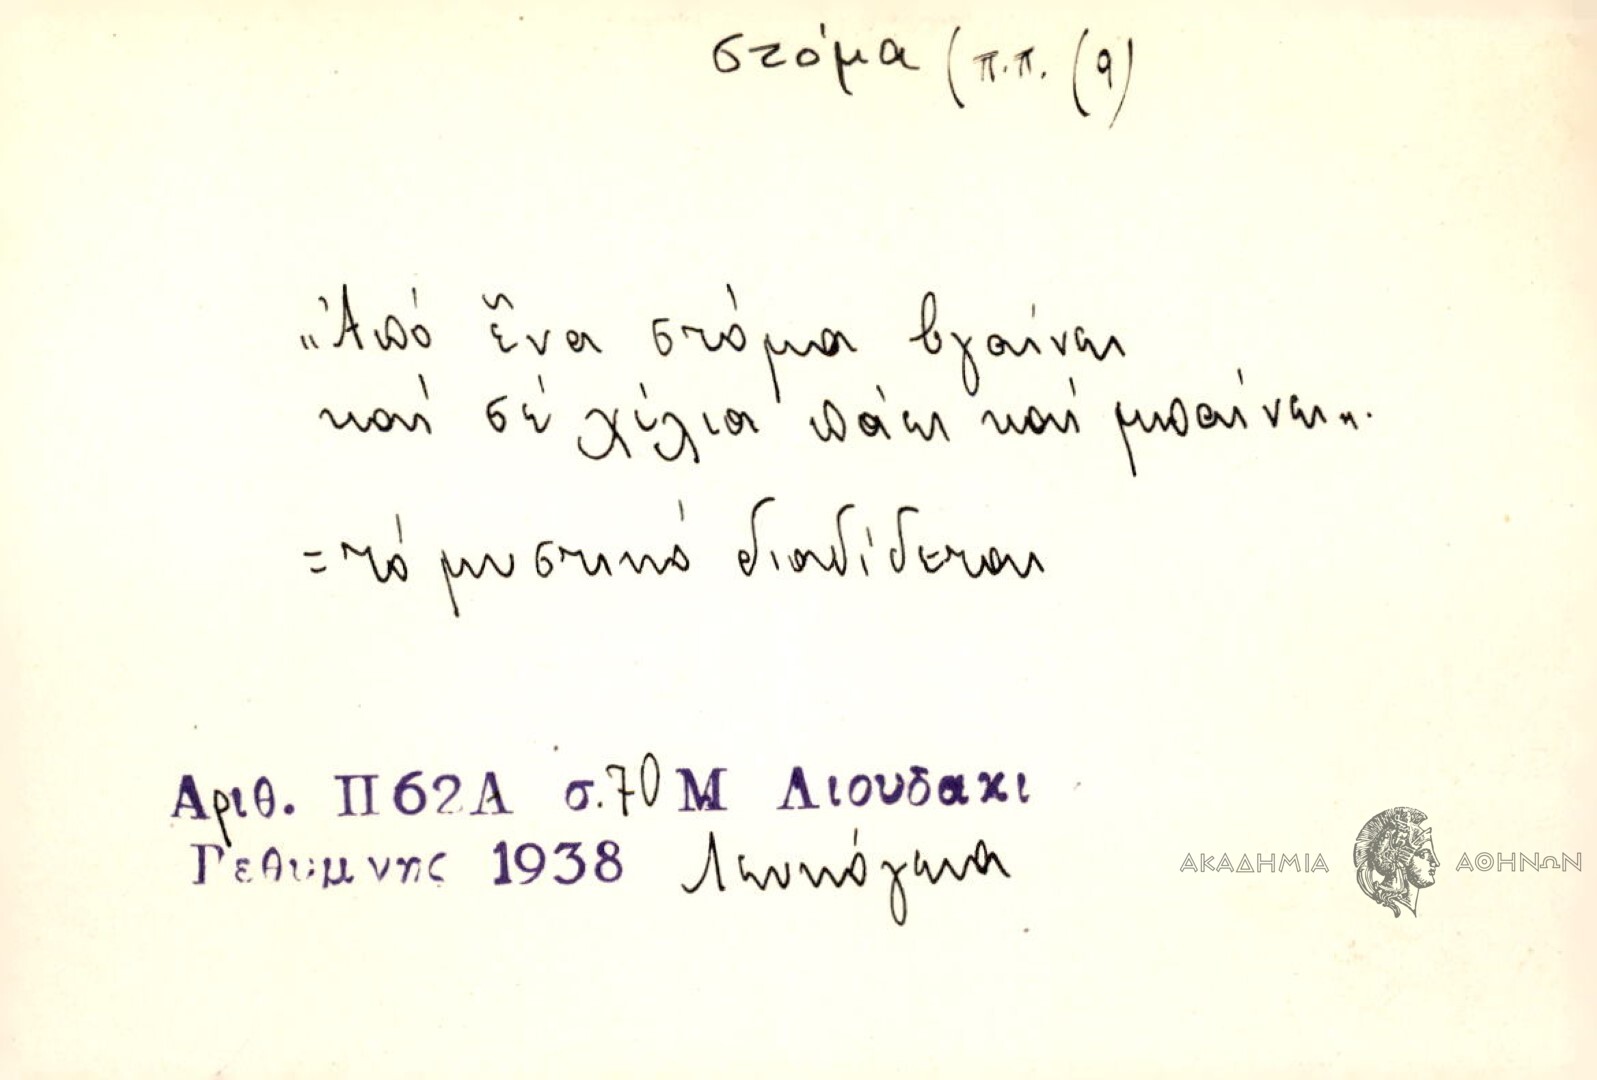 στόμα (π.π. (9)
„Ἀπό ἕνα στόμα βγαίνει
καί σέ χίλια πάει καί μπαίνει„.
=τό μυστικό διαδίδεται
Αριθ. Π62Α σ.70 Μ Λιουδακι
Γεθυμνης 1938 Λευκόγεια
ΑΚΑΔΗΜΙΑ ΑΘΗΝΩΝ